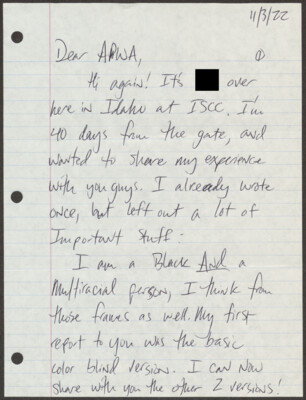 11/3/22
Dear APWA, ①
Hi again! It's over
here in Idaho at ISCC. I'm
40 days from the gate, and
wanted to share my experience
with you guys. I already wrote
once, but left out a lot of
Important stuff-
I am a Black And a
Multiracial person, I think from
those frames as well. My first
report to you was the basic
color blind version. I can now
share with you the other 2 versions!